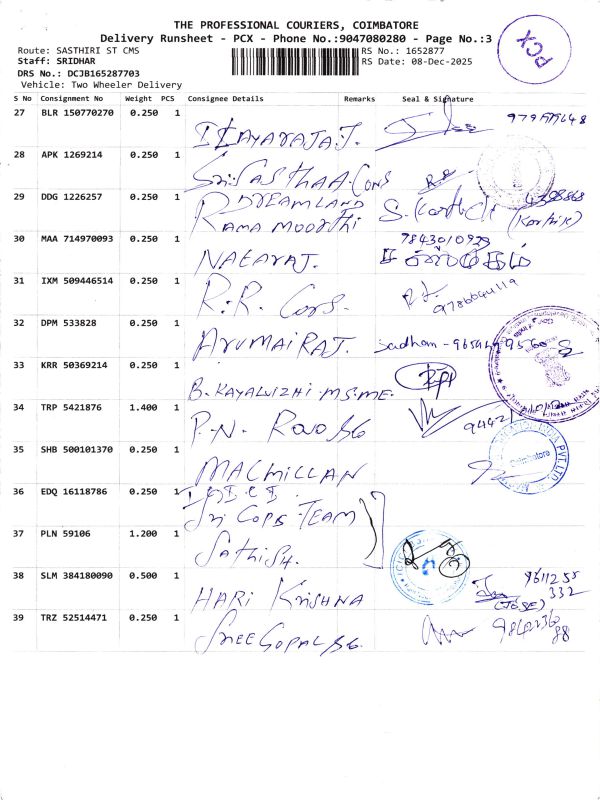 THE PROFESSIONAL COURIERS, COIMBATORE
Delivery Runsheet - PCX - Phone No.:9047080280 - Page No.:3
PCX
Route: SASTHIRI ST CMS RS No.: 1652877
Staff: SRIDHAR RS Date: 08-Dec-2025
DRS No.: DCJB165287703
Vehicle: Two Wheeler Delivery
S No Consignment No Weight PCS Consignee Details Remarks Seal & Signature
27 BLR 150770270 0.250 1 ILAYARAJA.J.
28 APK 1269214 0.250 1 Sri SASTHAA Cons
29 DDG 1226257 0.250 1 DREAMLAND
RAMA MOORTHI S. Karthick (Karthik)
30 MAA 714970093 0.250 1 NATARAJ. 7843010929
31 IXM 509446514 0.250 1 R.R. Cons. 9786041119
32 DPM 533828 0.250 1 ARUMAIRAJ.
33 KRR 50369214 0.250 1 B. KAYALVIZHI MSME.
34 TRP 5421876 1.400 1 P.N.
35 SHB 500101370 0.250 1 MACMILLAN
36 EDQ 16118786 0.250 1
Sri Cops TEAM
37 PLN 59106 1.200 1 Sathish.
38 SLM 384180090 0.500 1 HARI KRISHNA 9611255
332
(JOSE)
39 TRZ 52514471 0.250 1 SREE GOPAL